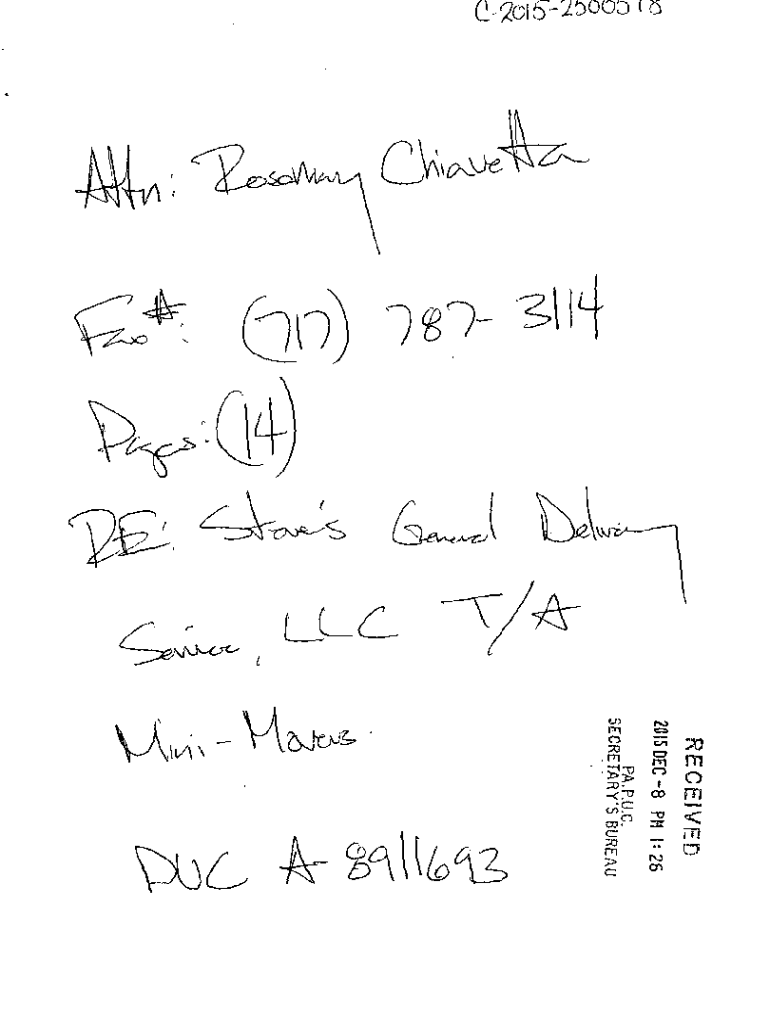 C-2015-2500578
Attn: Rosemary Chiavetta
Fax #: (717) 787-3114
Pages: (14)
RE: Steve's General Delivery
Service, LLC T/A
Mini-Movers
PUC A-8911693
RECEIVED
2015 DEC -8 PM 1:26
PA.P.U.C.
SECRETARY'S BUREAU